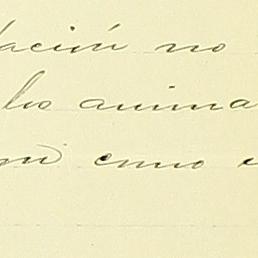 dación no
los anima
como